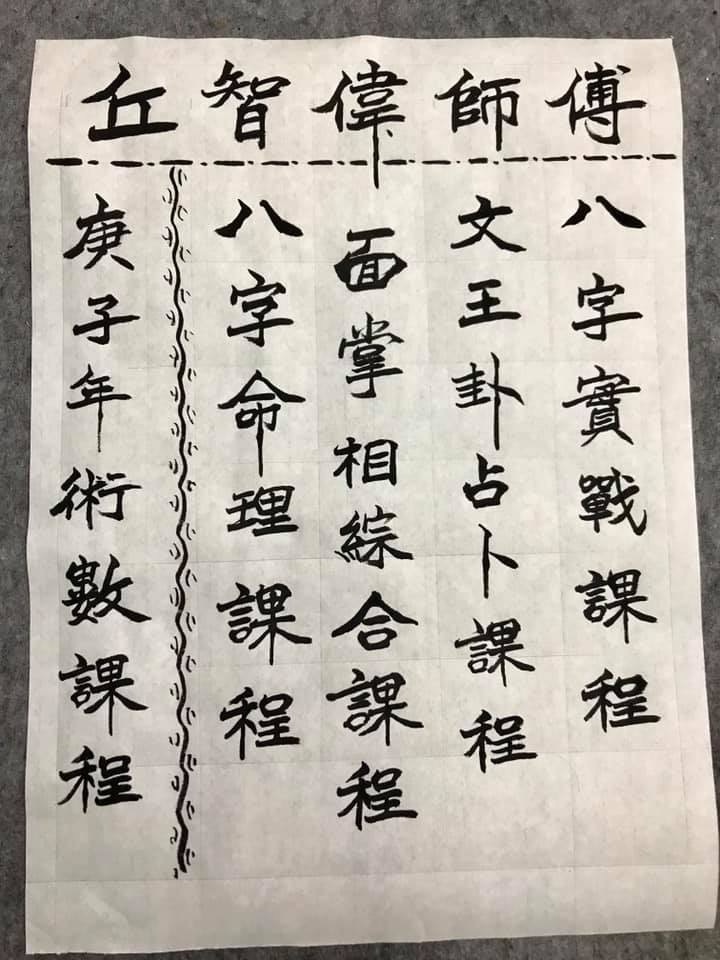 丘智偉師傅
八字實戰課程
文王卦占卜課程
面掌相綜合課程
八字命理課程
庚子年術數課程